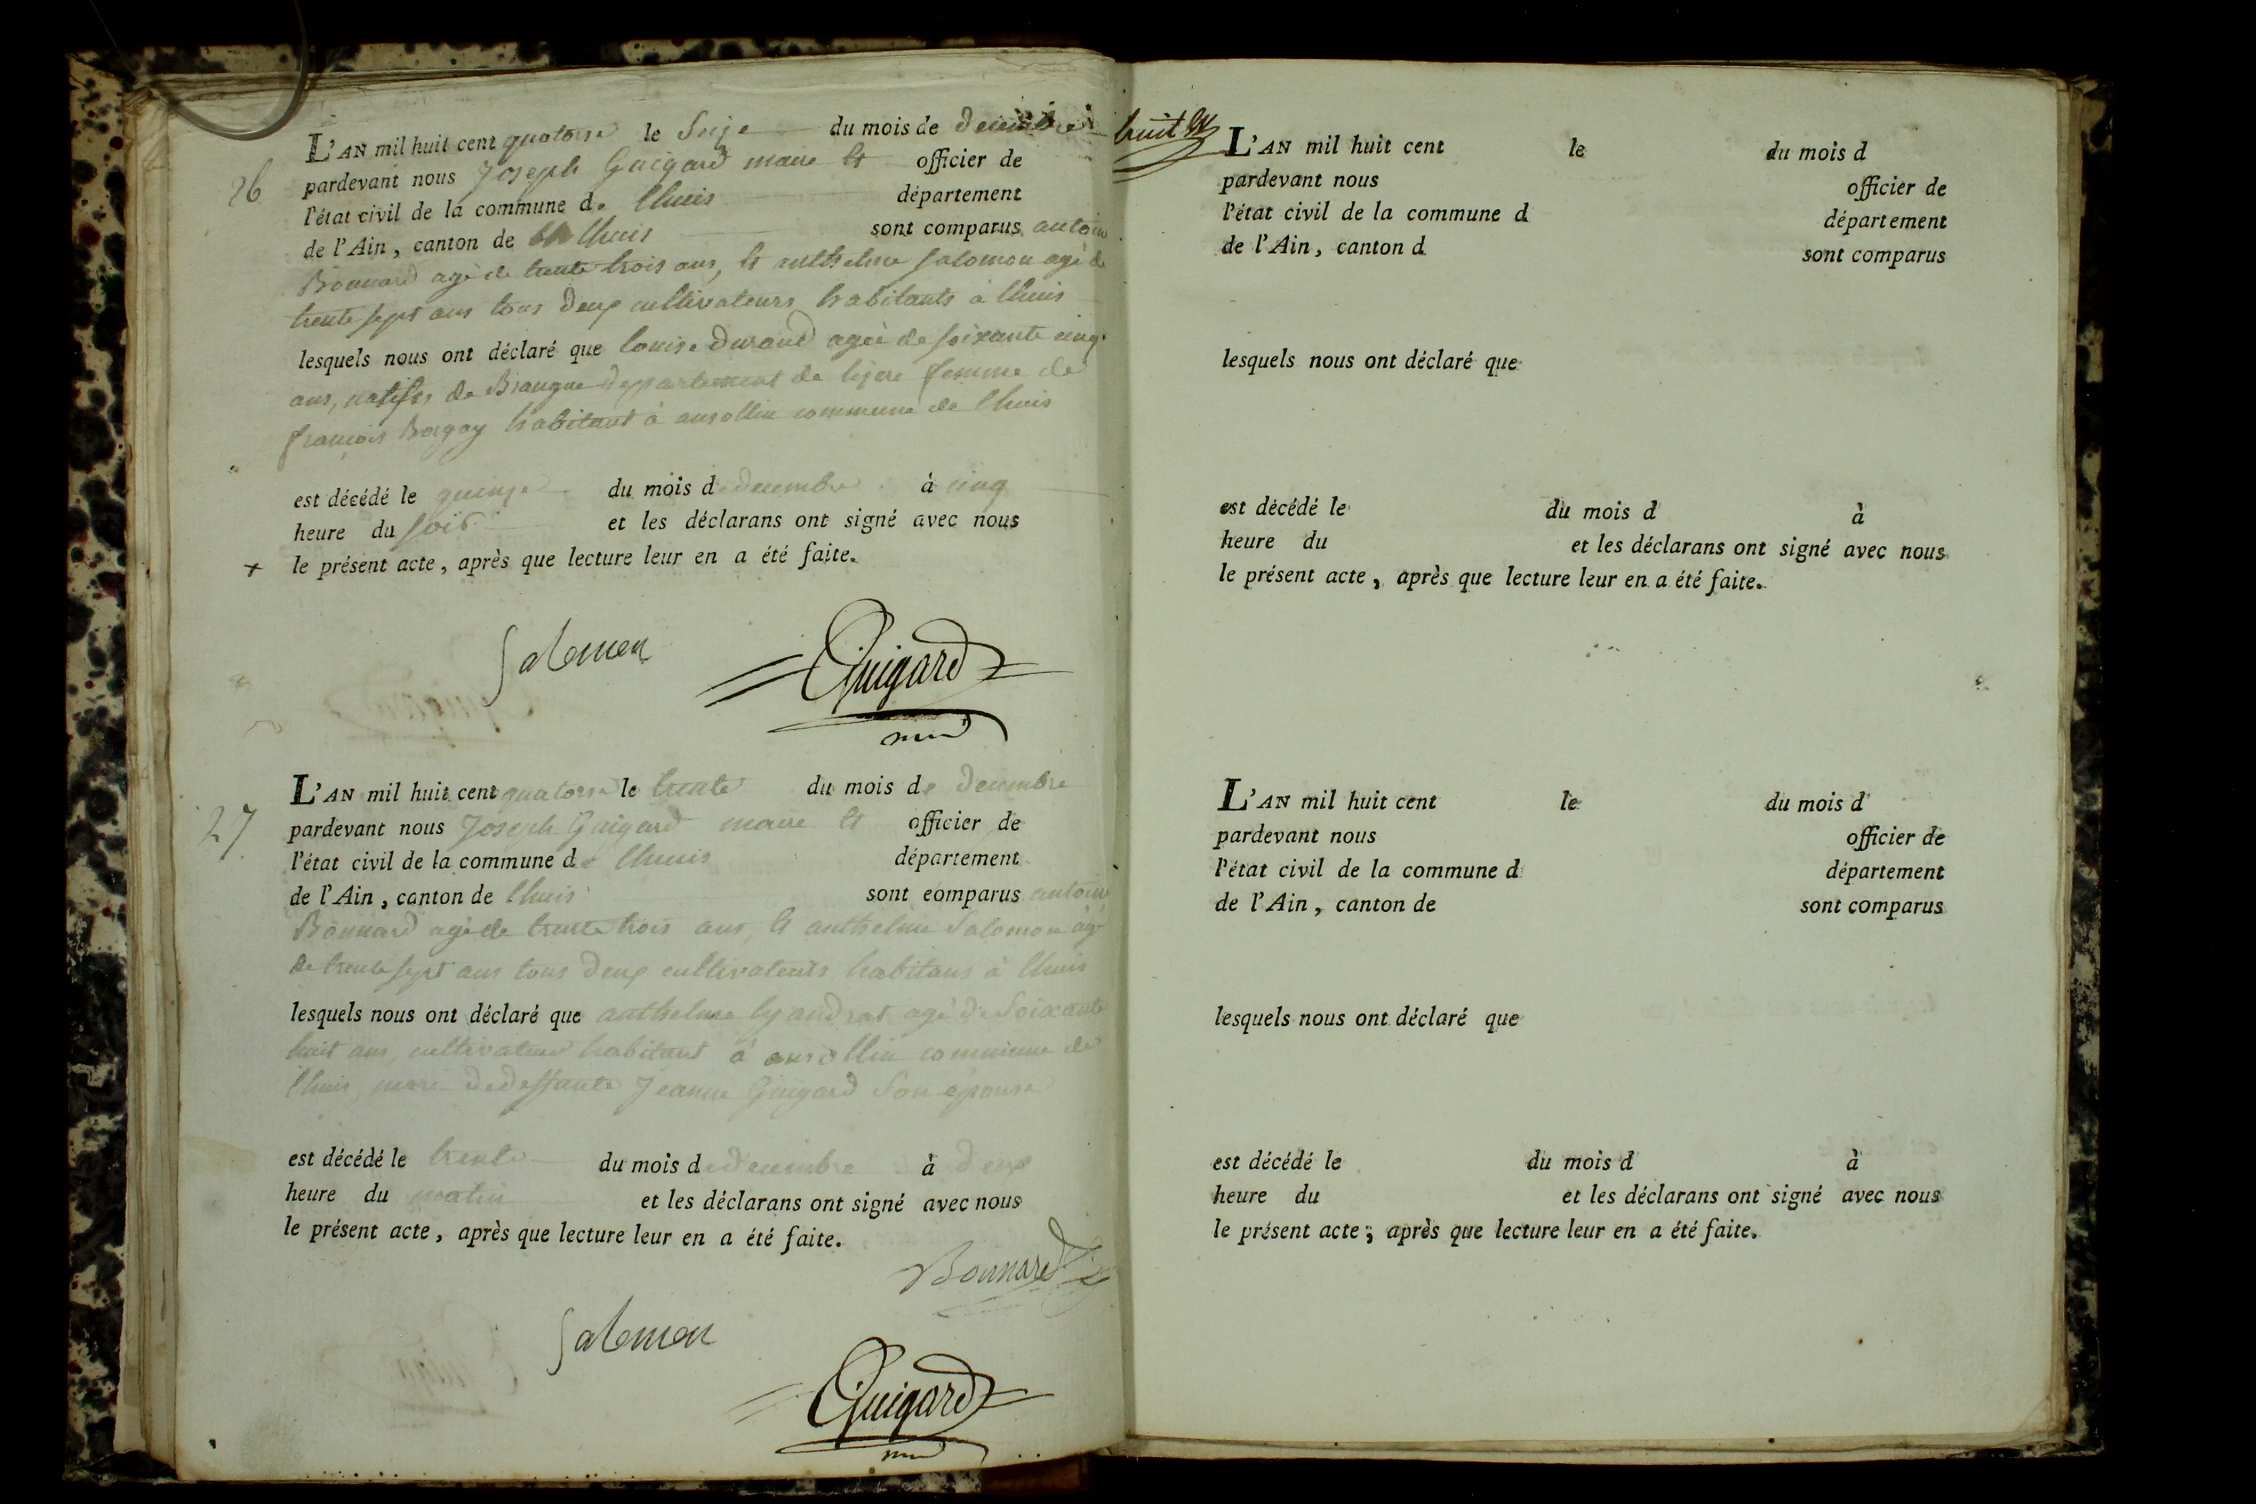 26
L'AN mil huit cent quatorze le Seize du mois de decembre
pardevant nous Joseph Guigard maire et officier de
l'état civil de la commune de lhuis département
de l'Ain, canton de lhuis sont comparus antoine
Bonnard agé de trente trois ans, et anthelme Salomon agé de
trente sept ans tous deux cultivateurs habitants à lhuis
lesquels nous ont déclaré que louise Durand agée de soixante cinq
ans, native de departement de lizere femme de
françois habitant à ansollin commune de lhuis
est décédé le quinze du mois de decembre à cinq
heure du soir et les déclarans ont signé avec nous
+ le présent acte, après que lecture leur en a été faite.
Salomon Guigard
27
L'AN mil huit cent quatorze le trente du mois de decembre
pardevant nous Joseph Guigard maire et officier de
l'état civil de la commune de lhuis département
de l'Ain, canton de lhuis sont comparus antoine
Bonnard agé de trente trois ans, et anthelme Salomon agé
de trente sept ans tous deux cultivateurs habitans à lhuis
lesquels nous ont déclaré que anthelme agé de Soixante
huit ans, cultivateur habitant à ansollin commune de
lhuis, mari de deffante Jeanne Guigard Son épouse
est décédé le trente du mois de decembre à deux
heure du matin et les déclarans ont signé avec nous
le présent acte, après que lecture leur en a été faite.
Bonnard
Salomon
Guigard
huit
L'AN mil huit cent le du mois d
pardevant nous officier de
l'état civil de la commune d département
de l'Ain, canton d sont comparus
lesquels nous ont déclaré que
est décédé le du mois d à
heure du et les déclarans ont signé avec nous
le présent acte, après que lecture leur en a été faite.
L'AN mil huit cent le du mois d
pardevant nous officier de
l'état civil de la commune d département
de l'Ain, canton de sont comparus
lesquels nous ont déclaré que
est décédé le du mois d à
heure du et les déclarans ont signé avec nous
le présent acte; après que lecture leur en a été faite.